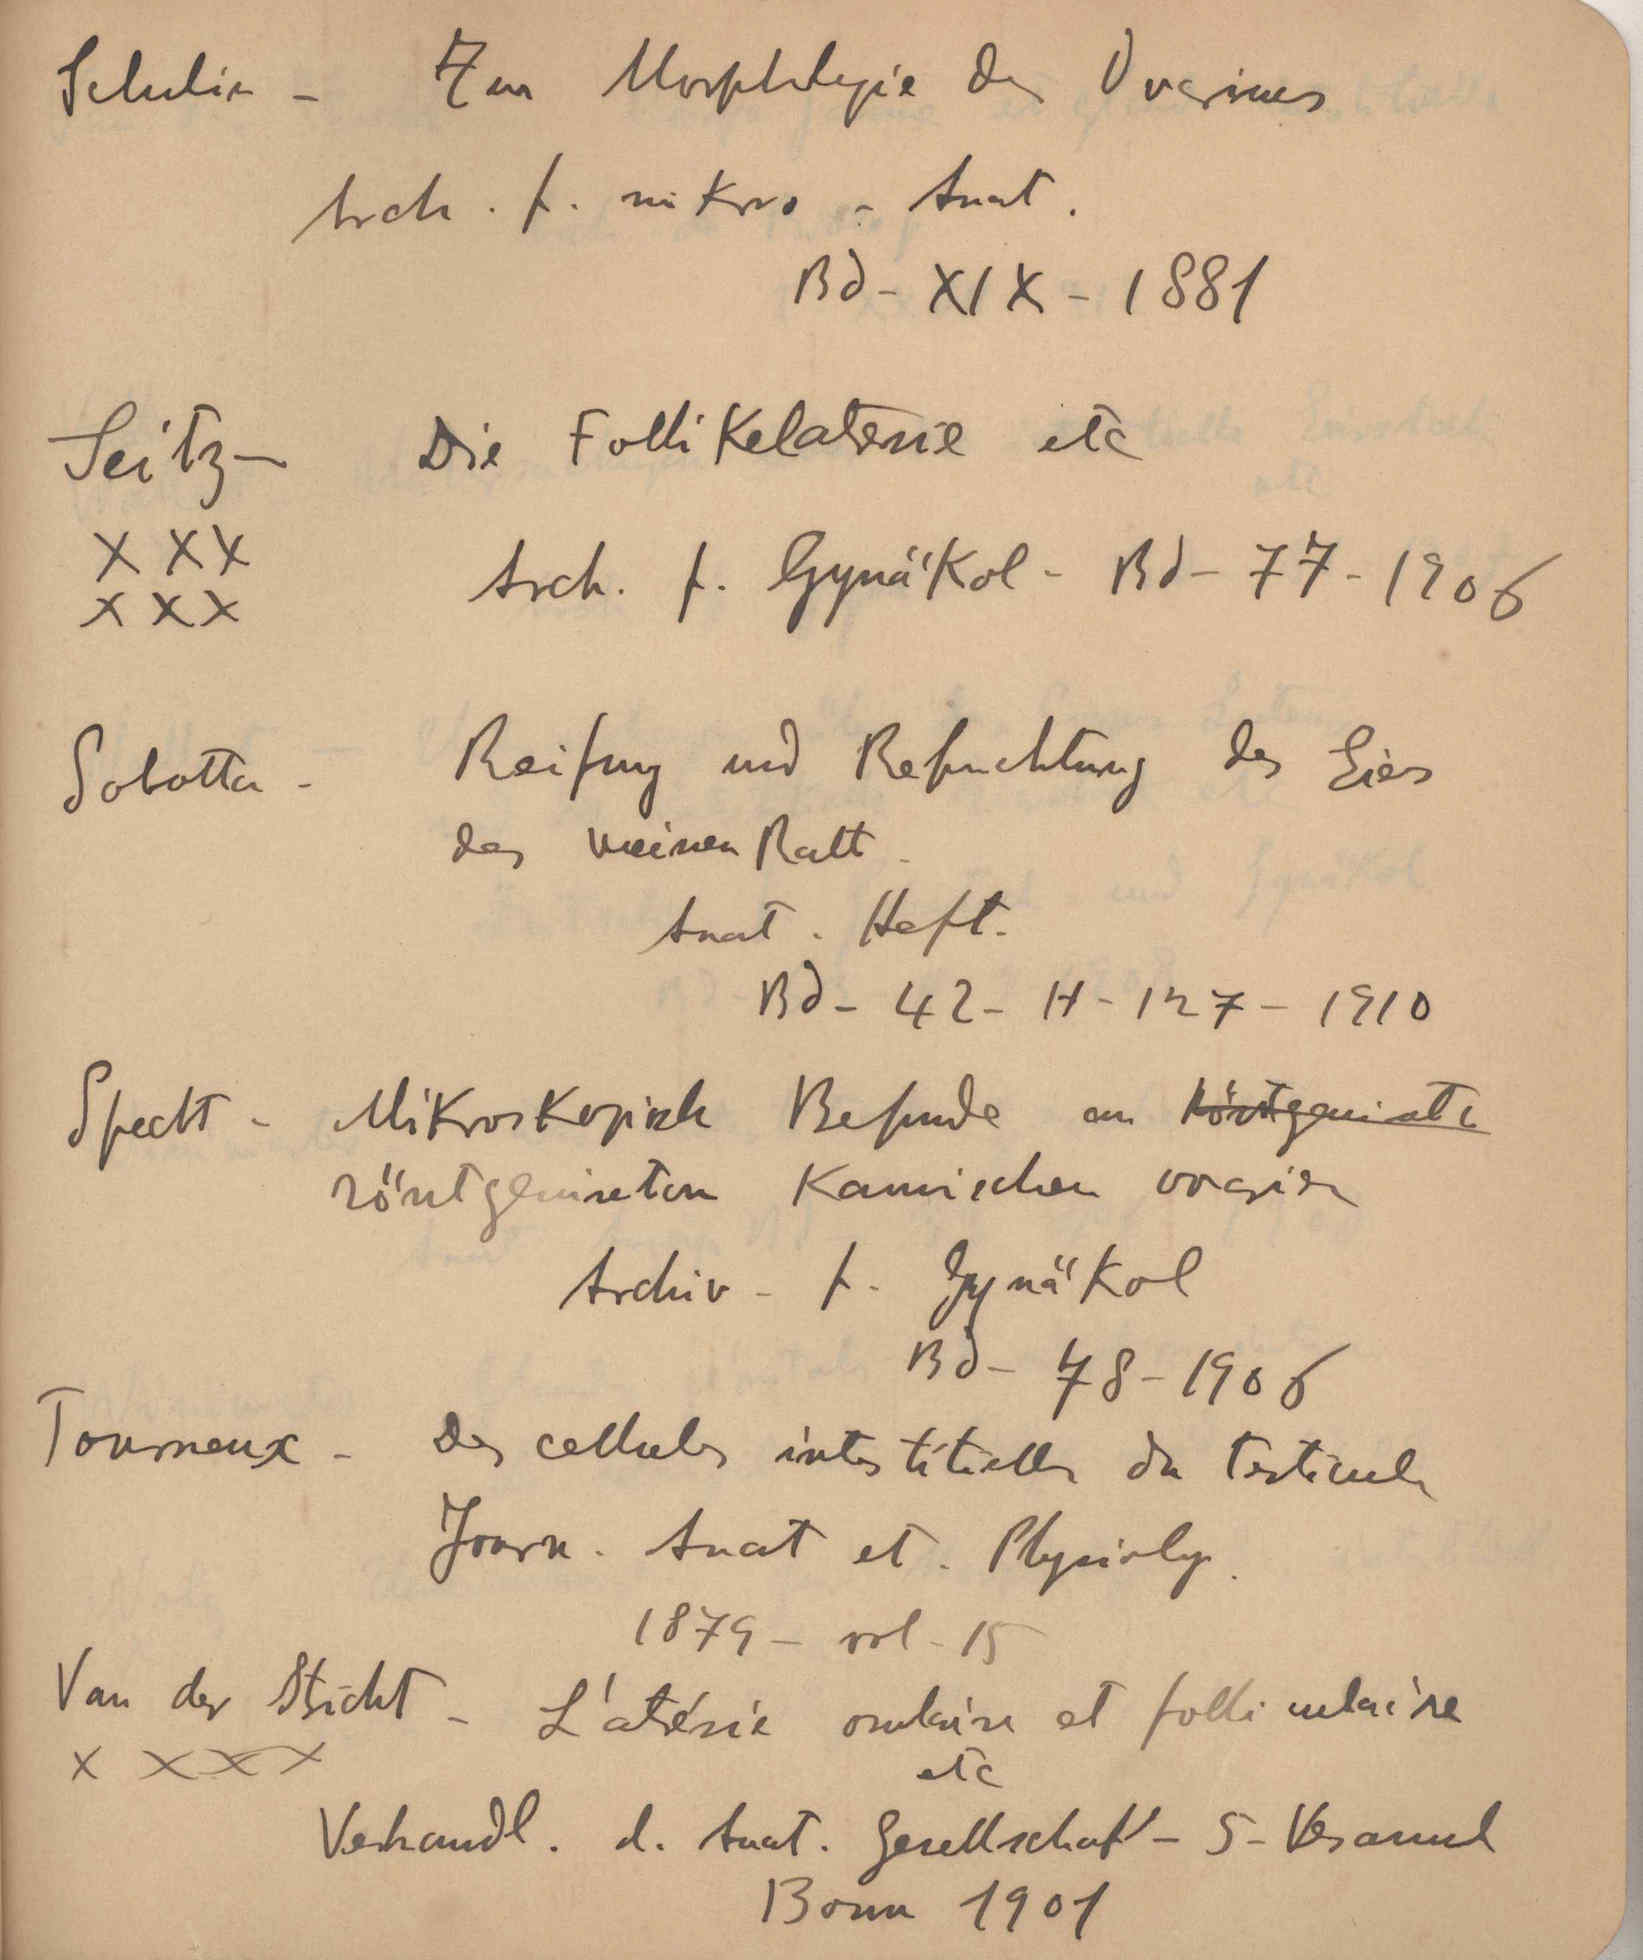 Schulin - Zur Morphologie des Ovariums
Arch. f. mikro - Anat.
Bd - XIX - 1881
Seitz - Die Follikelatresie etc
x x x
x x x
Arch. f. Gynäkol - Bd - 77 - 1906
Sobotta - Reifung und Befruchtung des Eies
der weissen Ratt.
Anat. Heft.
Bd - 42 - H - 127 - 1910
Specht - Mikroskopisch Befunde an röntgenisierte
röntgenisreten Kaninchen ovarien
Archiv - f. Gynäkol
Bd - 78 - 1906
Tourneux - Des cellules interstitielles du testicule
Journ. Anat et. Physiolog.
1879 - vol - 15
Van der Stricht - L'atrésie ovulaire et folliculaire
x x x x
etc
Verhandl. d. Anat. Gesellschaft - 5 - Versamml
Bonn 1901